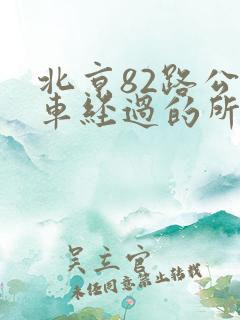 北京82路公
車經過的所
吴立官
未经同意禁止转载